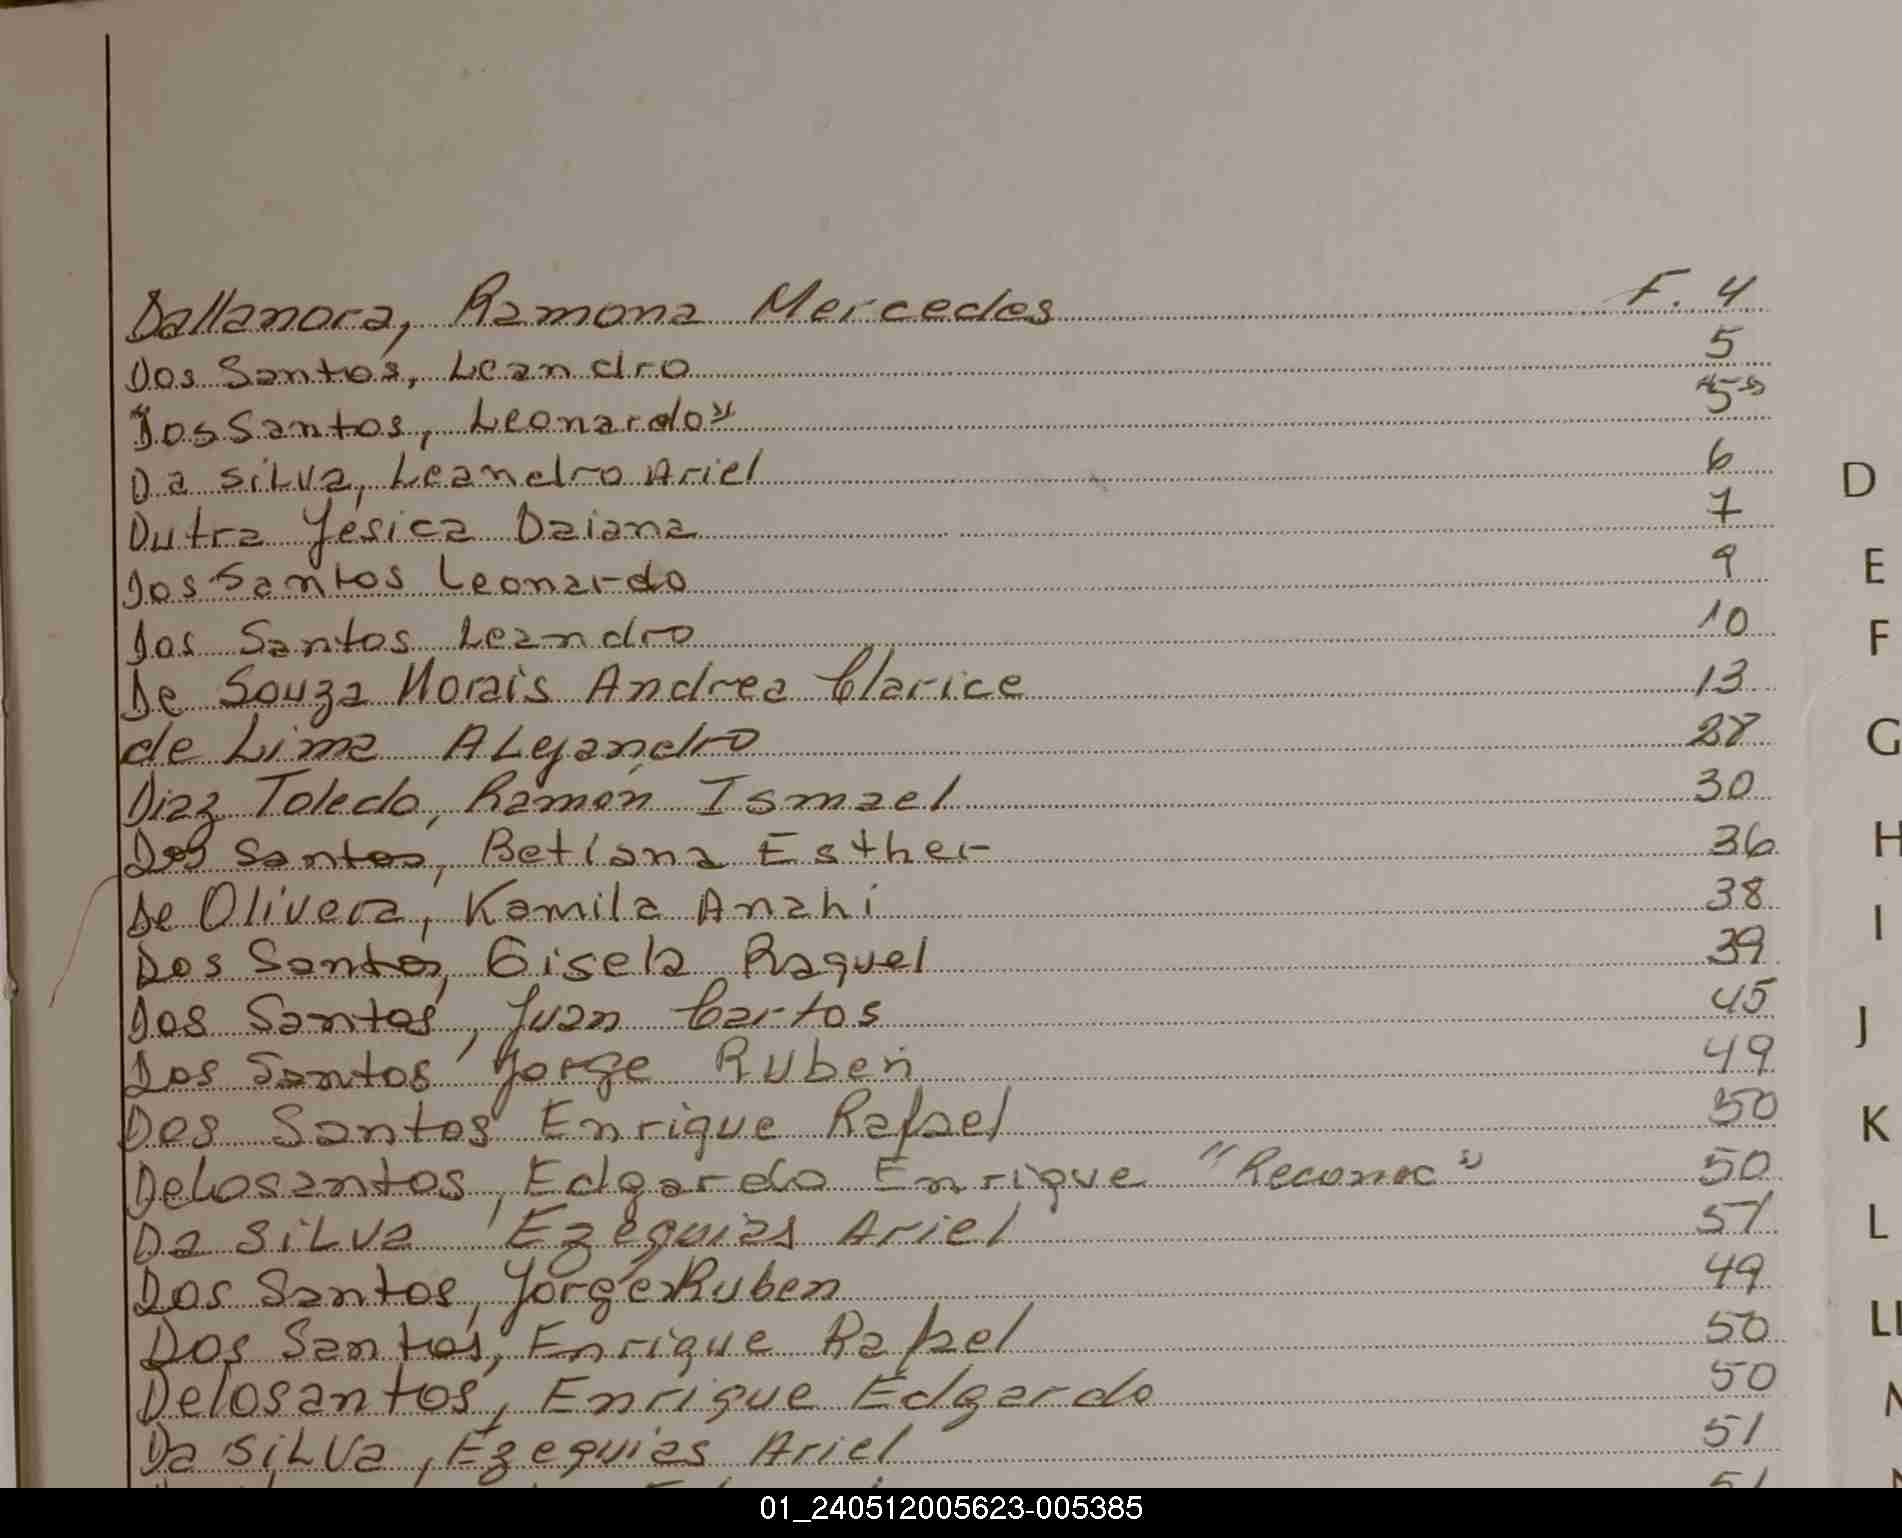 Dallanora, Ramona Mercedes F. 4
Dos Santos, Leandro 5
"Dos Santos, Leonardo" "5"
Da Silva, Leandro Ariel 6
Dutra Yesica Daiana 7
Dos Santos Leonardo 9
Dos Santos Leandro 10
De Souza Morais Andrea Clarice 13
de Lima Alejandro 28
Diaz Toledo, Ramón Ismael 30
Dos Santos, Betiana Esther 36
De Olivera, Kamila Anahi 38
Dos Santos, Gisela Raquel 39
Dos Santos, Juan Carlos 45
Dos Santos Jorge Ruben 49
Dos Santos Enrique Rafael 50
Delosantos, Edgardo Enrique "Reconoc" 50
Da Silva Ezequias Ariel 51
Dos Santos, Jorge Ruben 49
Dos Santos, Enrique Rafael 50
Delosantos, Enrique Edgardo 50
Da Silva, Ezequias Ariel 51
51
D
E
F
G
H
I
J
K
L
Ll
01_240512005623-005385